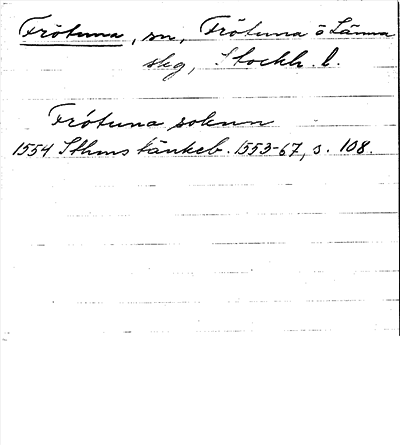 Frötuna, sn, Frötuna o Länna
skg, Stockh. l.
Frótuna soknn
1554 Sthms tänkeb. 1553-67, s. 108.